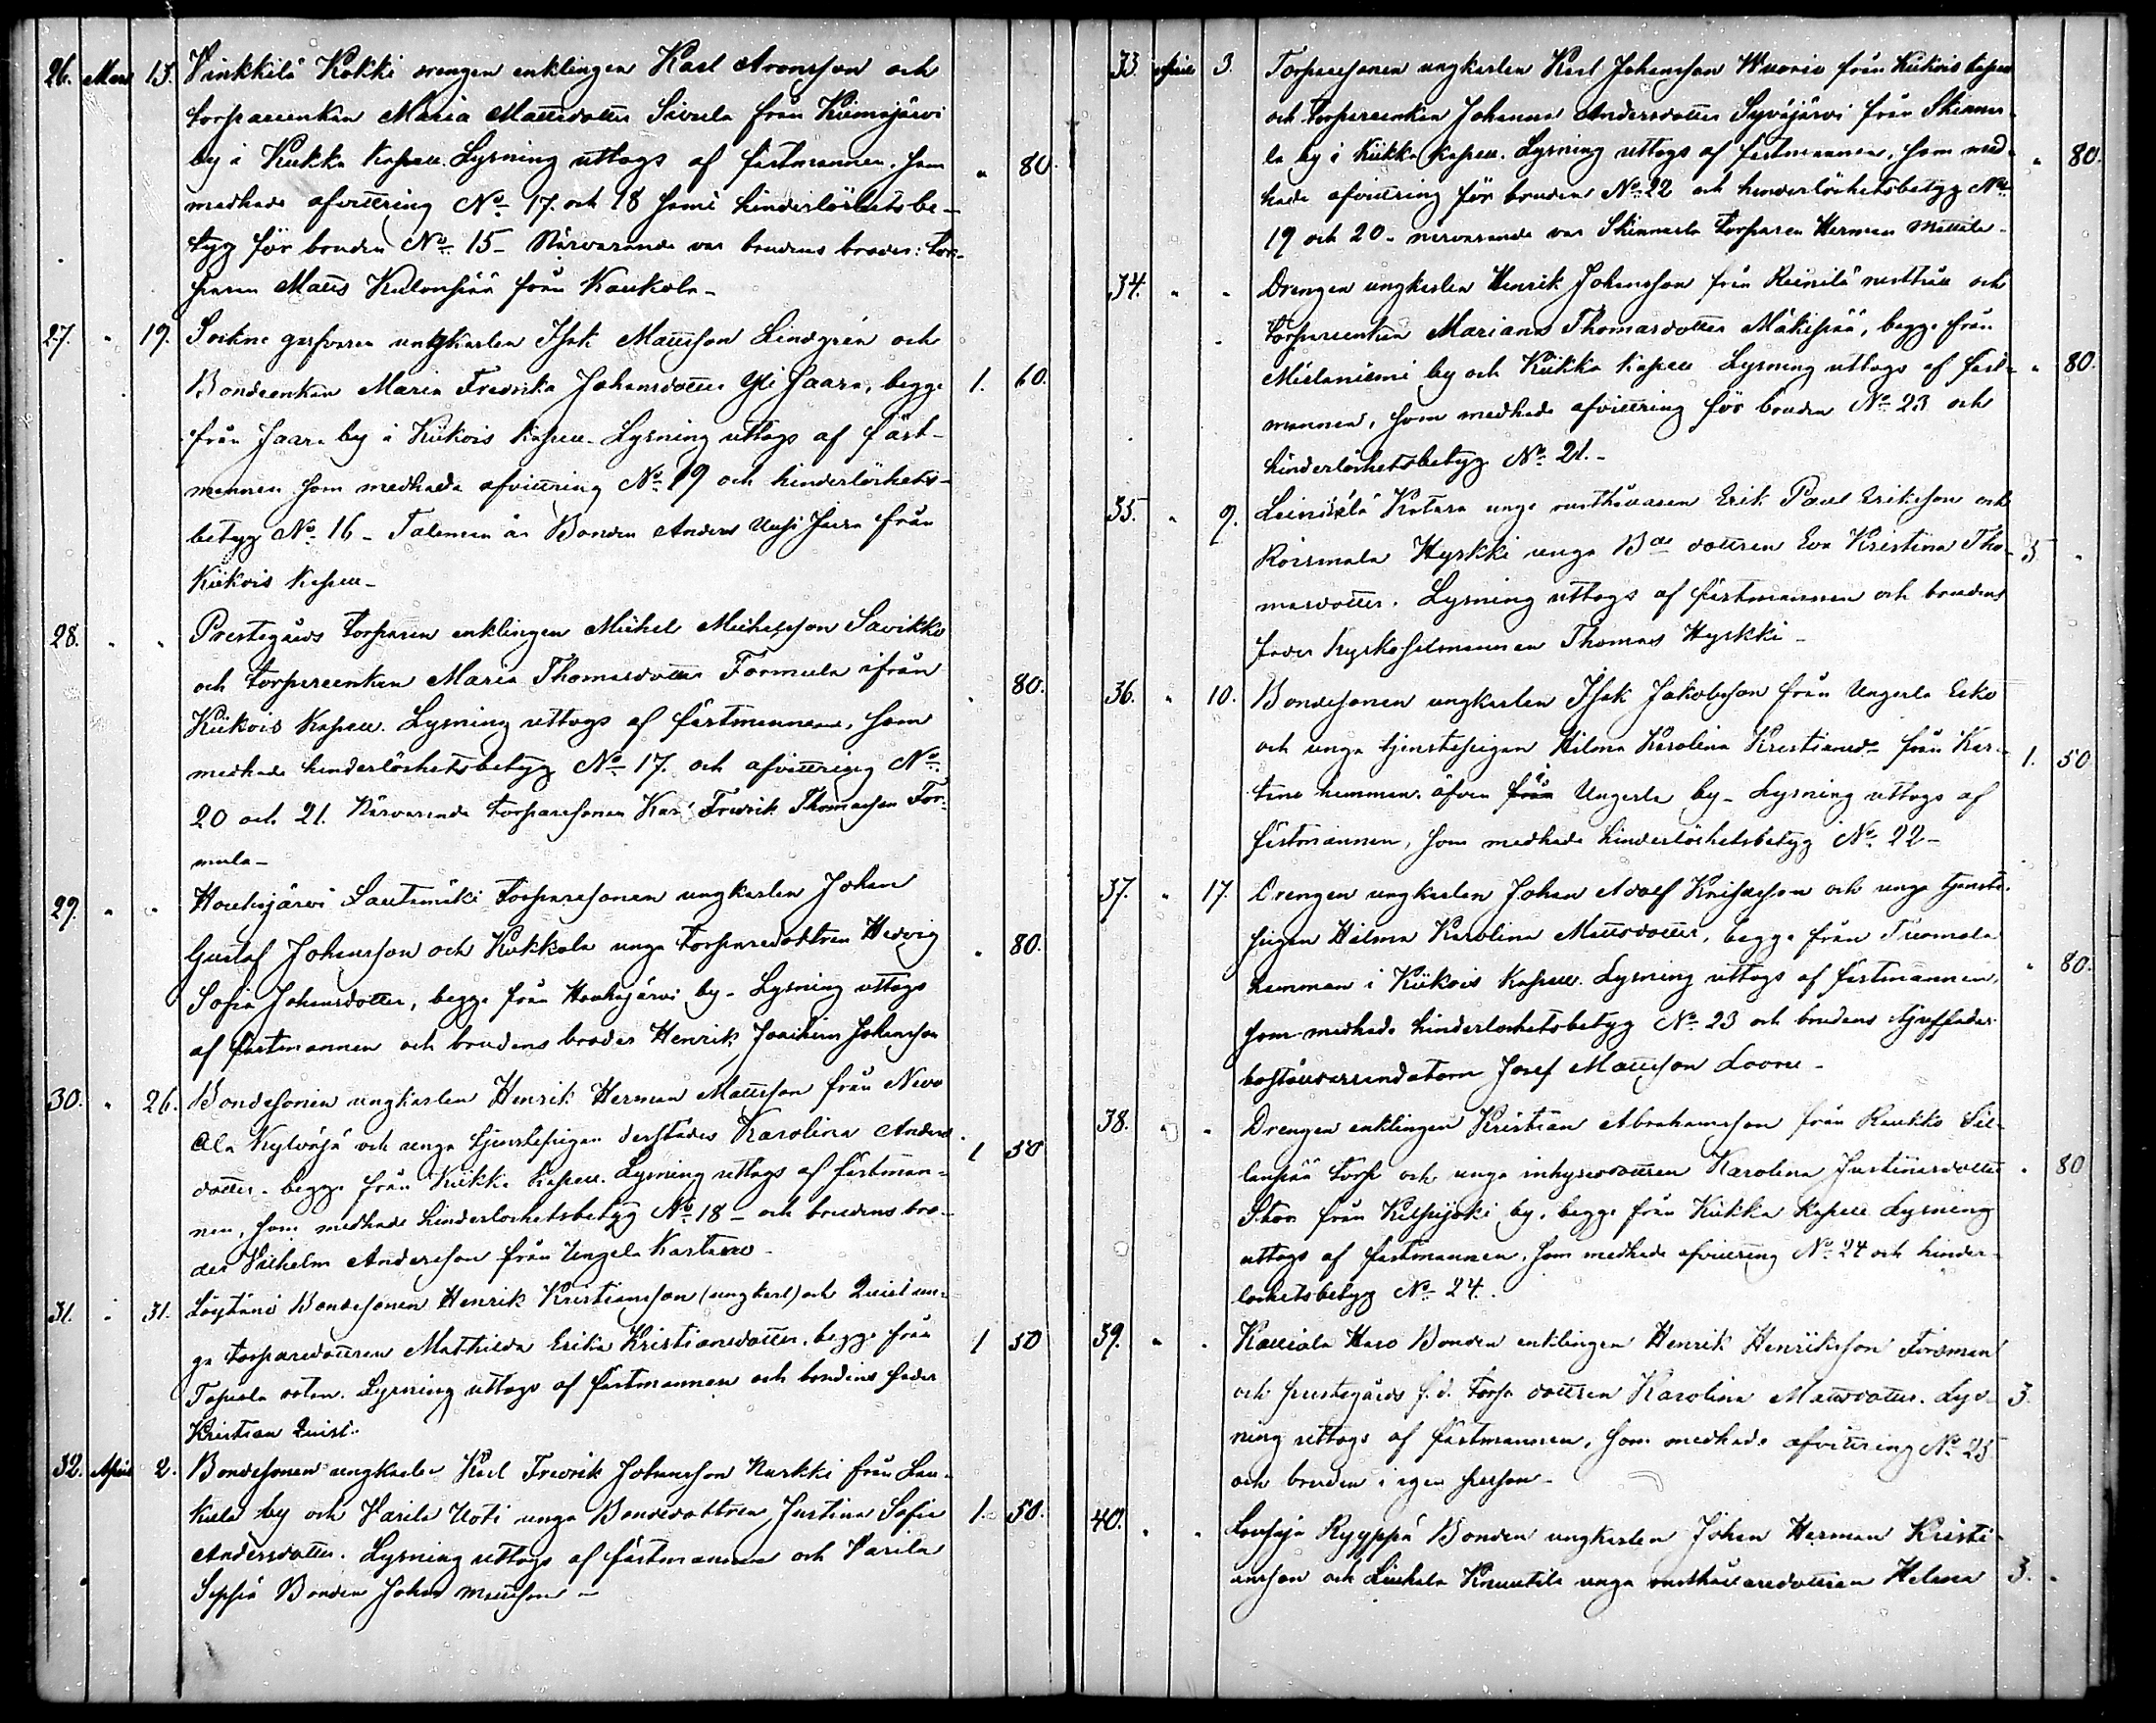 26. Mars 15. Vinkkilä Kokki drengen enklingen Karl Aronsson och
torpareenkan Maria Mattsdotter Sivula från Kiimajärvi
by i Kiikka kapell. Lysning uttogs af fästmannen, som " 80.
medhade afvittring No 17. och 18 samt hinderlöshetsbe-
tyg för bruden No 15 - Närvarande var brudens broder: tor-
paren Matts Kulonpää från Kaukola -
27. " 19. Sockne garfvaren ungkarlen Isak Mattsson Lindgrén och
Bondeenkan Maria Fredrika Johansdotter Yli Jaara, begge 1. 60.
från Jaara by i Kiikois kapell. Lysning uttogs af fäst-
mannen som medhade afvittring No 19 och hinderlöshets-
betyg No 16 - Taleman är Bonden Anders Uusi Jaara från
Kiikois kapell -
28. " " Prestegårds torparen enklingen Michel Michelsson Savikko
och torpareenkan Maria Thomasdotter Formula ifrån
Kiikois kapell. Lysning uttogs af fästmannen, som " 80.
medhade hinderlöshetsbetyg No 17. och afvittring No
20 och 21. Närvarande torparesonen Karl Fredrik Thomasson For-
mula -
29. " " Houhajärvi Lautamäki Torparesonen ungkarlen Johan
Gustaf Johansson och Kukkola unga Torparedottren Hedvig " 80.
Sofia Johansdotter, begge från Houhajärvi by - Lysning uttogs
af fästmannen och brudens broder Henrik Joachim Johansson
30. " 26. Bondesonen ungkarlen Henrik Herman Mattsson från Nevo
Ala Kylväjä och unga tjenstepigan derstädes Karolina Anders
dotter - begge från Kiikka kapell. Lysning uttogs af fästman- 1 50
nen, som medhade hinderloshetsbetyg No 18 - och brudens bro-
der Vilhelm Andersson från Ungela Karteno -
31. " 31. Löytäne Bondesonen Henrik Kristiansson (ungkarl) och Quist un-
ga torparedottren Mathilda Erika Kristiansdotter, begge från 1 50
Tapiola roten. Lysning uttogs af fästmannen och brudens fader
Kristian Quist.
32. April 2. Bondesonen ungkarlen Karl Fredrik Johansson Nurkki från Lau-
kula by och Varila Uoti unga Bondedottren Justina Sofia 1. 50.
Andersdotter. Lysning uttogs af fästmannen och Varila
Seppä Bonden Johan Mattsson -
33. April 3. Torparesonen ungkarlen Karl Johansson Wuorio från Kiikois kapell
och torpareenkan Johanna Andersdotter Syväjärvi från Skinnar-
la by i Kiikka kapell. Lysning uttogs af fästmannen, som med- " 80.
hade afvittring för bruden No 22 och hinderlöshetsbetyg No
19 och 20 - närvarande var Skinnarla torparen Herman Mattila -
34. " " Drengen ungkarlen Henrik Johansson från Reinilä rusthåll och
torpareenkan Mariana Thomasdotter Mäkipää, begge från
Mielaniemi by och Kiikka kapell Lysning uttogs af fäst- " 80.
mannen, som medhade afvittring för bruden No 23 och
hinderlöshetsbetyg No 21. -
35. " 9. Leiniälä Katara unge rusthållaren Erik Paul Eriksson och
Roismala Hyrkki unga Bde dottren Eva Kristina Tho- 3 "
masdotter. Lysning uttogs af fästmannen och brudens
fader Kyrkosexmannen Thomas Hyrkki -
36. " 10. Bondesonen ungkarlen Isak Jakobsson från Ungerla Esko
och unga tjenstepigan Hilma Karolina Kristiansd. från Kar-
teno hemman, äfven från i Ungerla by - Lysning uttogs af 1. 50
fästmannen, som medhade hinderlöshetsbetyg No 22 -
37. " 17. Drengen ungkarlen Johan Adolf Knisasson och unga tjenste-
pigan Hilma Karolina Mattsdotter, begge från Tuomala
hemman i Kiikois kapell. Lysning uttogs af fästmannen, " 80.
som medhade hinderloshetsbetyg No 23 och brudens styffader
bostäusarrendatorn Josef Mattsson
38. " " Drengen enklingen Kristian Abrahamsson från Raukko Sil-
lanpää torp och unga inhysesdottren Karolina Justiinasdotter " 80
Stor från Kilpijoki by, begge från Kiikka kapell Lysning
uttogs af fästmannen, som medhade afvittring No 24 och hinder-
loshetsbetyg No 24.
39. " " Kalliala Haro Bonden enklingen Henrik Henriksson
och prestegårds f.d. torp dottren Karolina Mattsdotter. Lys- 3.
ning uttogs af fästmannen, som medhade afvittring No 25
och bruden i egen person -
40. " " Lousaja Ryyppä Bonden ungkarlen Johan Herman Kristi-
ansson och Liuhala Knuutila unga rusthållaredottren Helena 3. "